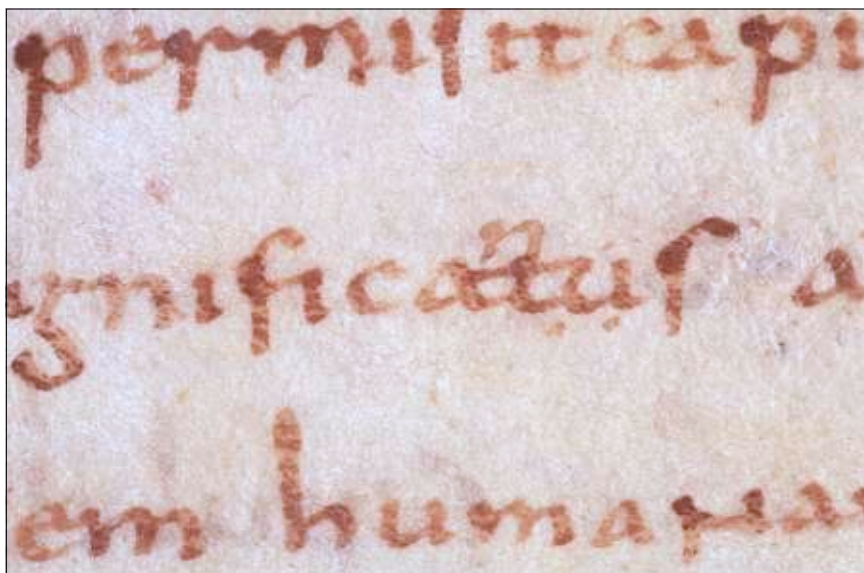 permiſit capi
gnificatuſ a
em humana